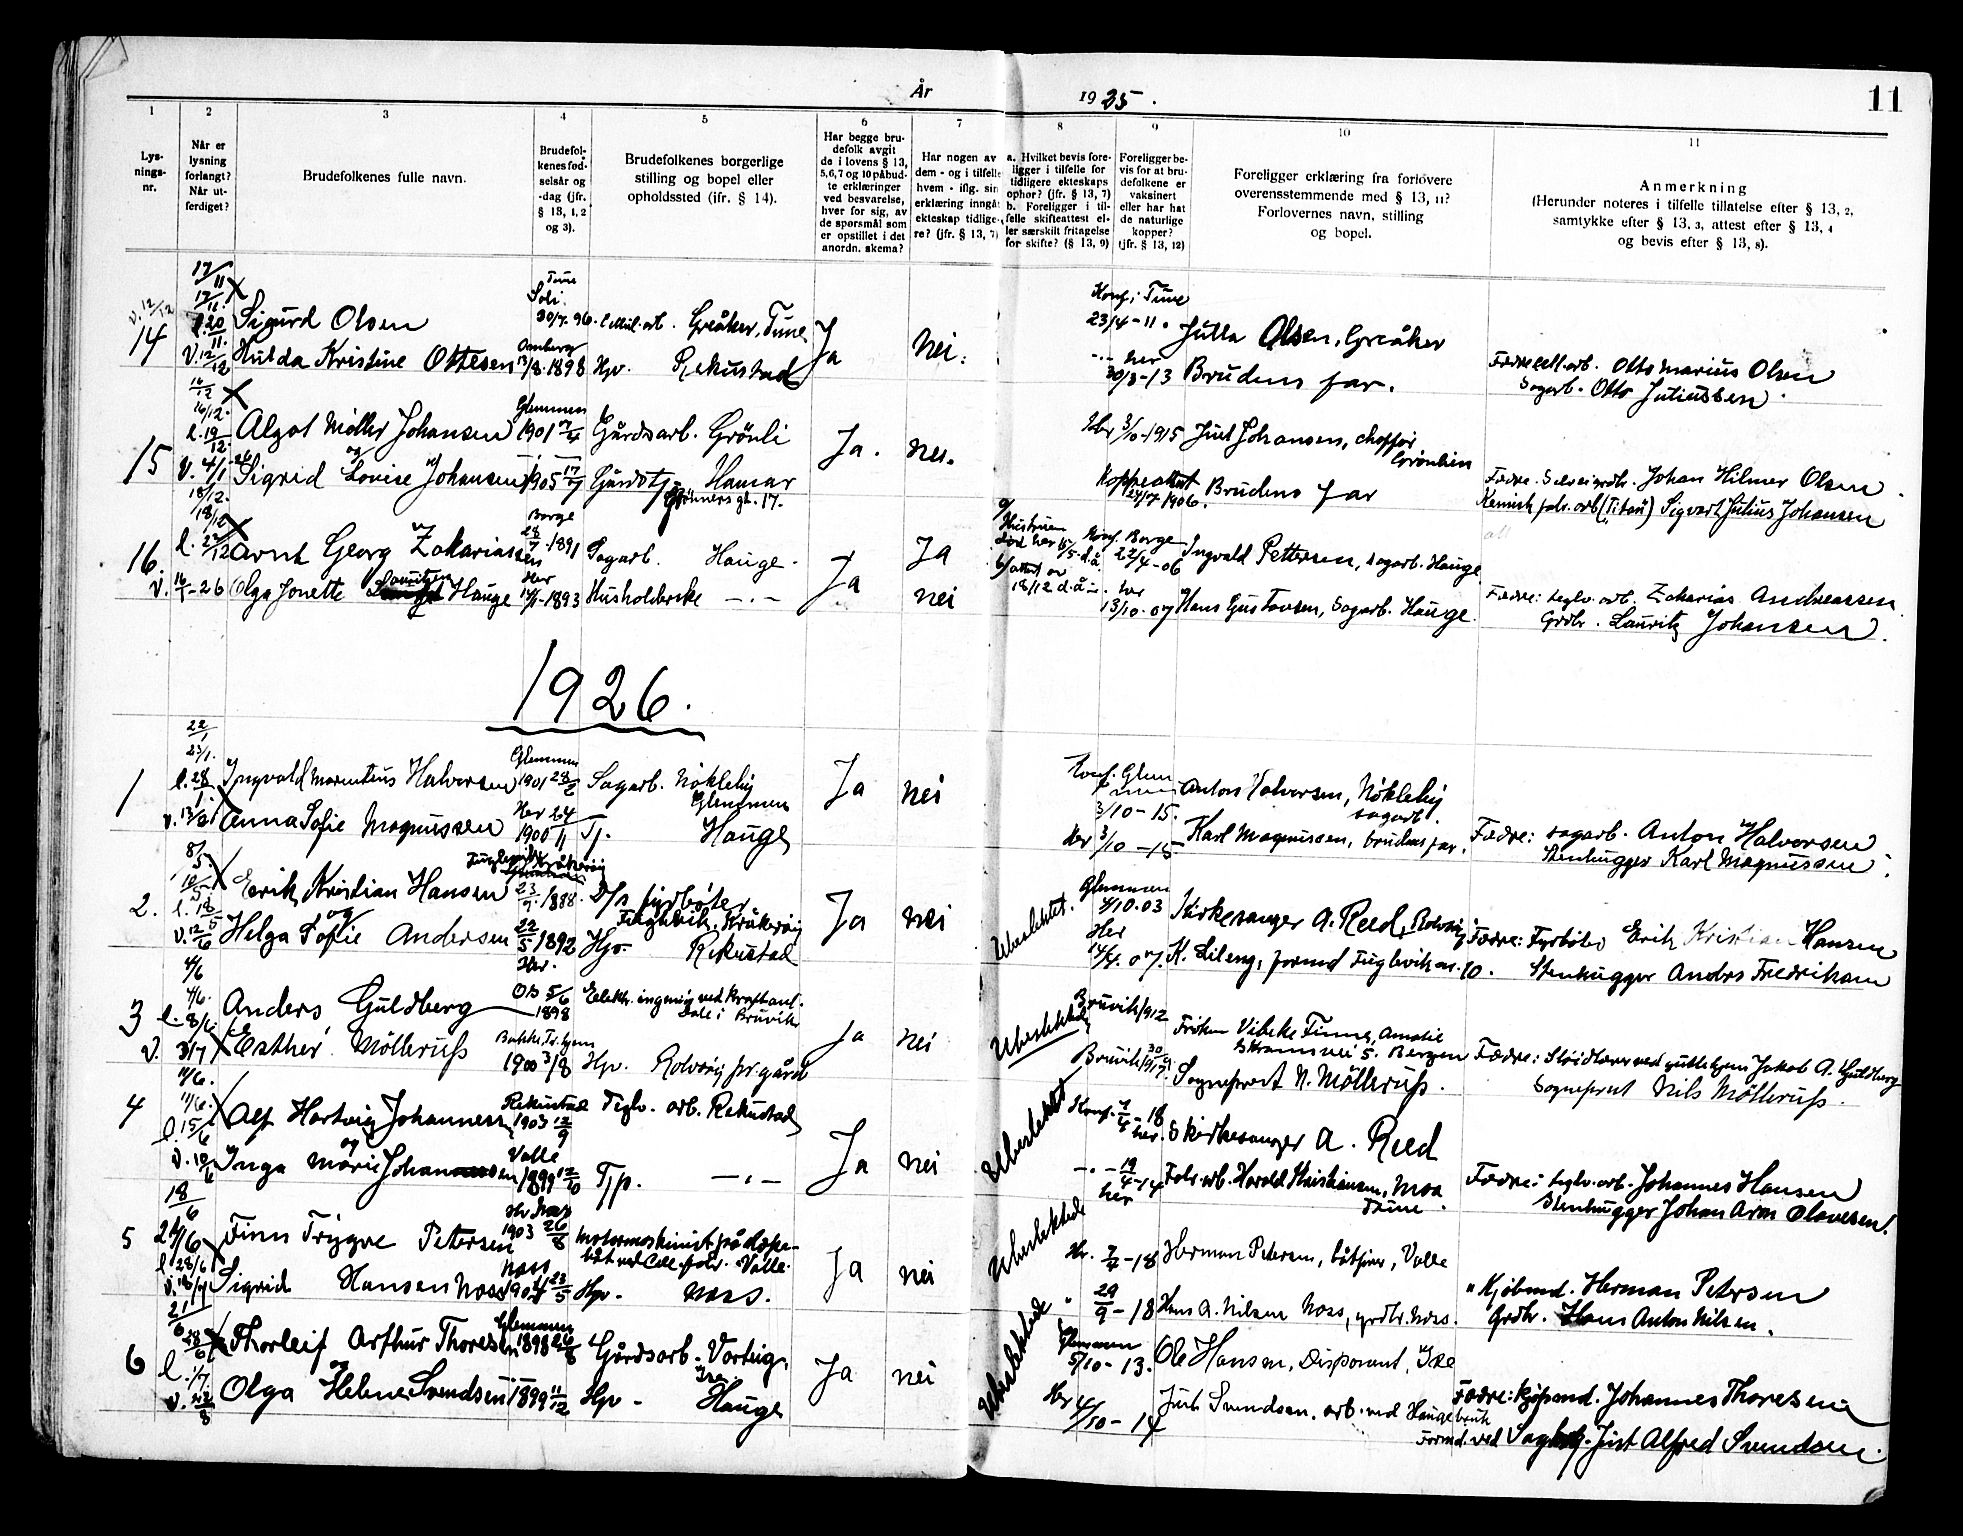 År 1925.
11
1 2 3 4 5 6 7 8 9 10 11
Lys-
nings-
nr.
Når er
lysning
forlangt?
Når ut-
ferdiget?
Brudefolkenes fulle navn.
Brudefol-
kenes fød-
selsår og
-dag (jfr.
§ 13, 1, 2
og 3).
Brudefolkenes borgerlige
stilling og bopel eller
opholdssted (jfr. § 14).
Har begge bru-
defolk avgit
de i lovens § 13,
5,6,7 og 10 påbud-
te erklæringer
ved besvarelse,
hver for sig, av
de spørsmål som
er opstillet i det
anordn. skema?
Har nogen av
dem - og i tilfelle
hvem - iflg. sin
erklæring inngåt
ekteskap tidlige-
re? (jfr. § 13, 7)
a. Hvilket bevis fore-
ligger i tilfelle for
tidligere ekteskaps
ophør? (jfr. § 13, 7)
b. Foreligger i til-
felle skifteattest el-
ler særskilt fritagelse
for skifte? (§ 13, 9)
Foreligger be-
vis for at bru-
defolkene er
vaksinert
eller har hat
de naturlige
kopper?
(jfr. § 13, 12)
Foreligger erklæring fra forlovere
overensstemmende med § 13, 11?
Forlovernes navn, stilling
og bopel.
Anmerkning
(Herunder noteres i tilfelle tillatelse efter § 13, 2,
samtykke efter § 13, 3, attest efter § 13, 4
og bevis efter § 13, 8).
14
17/11
17/11.
l. 20/11.
v. 12/12
Sigurd Olsen
Tune
30/7. 96.
Greåker, Tune
Ja
Nei.
Konf. i Tune
23/4-11.
Jutta Olsen, Greåker
Hulda Kristine Ottesen
13/8. 1898
Hp. Rekustad
her
30/3-13
Brudens far.
Otto Marius Olsen
Sagarb. Otto Juliussen.
15
16/12
16/12.
l. 19/12.
v. 4/1-26
Algot Møller Johansen
og
Glemmen
1901
Gårdsarb. Grönli
Ja.
nei.
Her 3/10-1915
Just Johansen, choffør
Sigrid Lovise Johansen
1905
Hamar
gt. 17.
Koppeattest
1906.
Brudens far
Fædre. Johan Hilmer Olsen.
Kemisk fabr. arb (Titan) Sigvart Julius Johansen
16.
18/12.
18/12
l. 22/12
v. 16/1-26
Arnt Georg Zakariassen
Borge
28/7. 1891
Sagarb. Hauge.
Ja
Ja
Hustruen
død her 15/5. d.å.
Konf. Borge
22/4-06
Ingvald Pettersen, sagarb. Hauge
Olga Jonette Lauritzen Hauge
Her
1893
Husholderske -.-
nei
b/ attest av
18/12 d.å.
her
13/10-07
Hans Gustavsen, Sagarb. Hauge.
Fædre: teglv. arb. Zakarias Andreassen
Grdbr. Lauritz Johansen.
1926.
1
22/1
23/1.
l. 28/1.
v. 13/2
Ingvald Marentius Halvorsen
Glemmen
1901 28/2
Sagarb. Nökleby
Glemmen
Ja
nei
Konf. Glem
men
3/10-15.
Anton Halvorsen, Nökleby
sagarb.
Anna Sofie Magnussen
Her 24/11
1900
Tj. Hauge
Her 3/10-15
Karl Magnussen, brudens far.
Fædre: sagarb. Anton Halvorsen
Stenhugger Karl Magnussen.
2.
8/5.
10/5.
l. 18/5
v. 12/6
Erik Kristian Hansen
og
23/9. 1888.
D/s fyrbøter
Fuglevik, Kråkerøy
Ja
nei
Uberlektet.
Glemmen
4/10.03
Kirkesanger A. Reed, Rolvsøy
Helga Sofie Andersen
22/5 1892
Her.
Hp. Rekustad
Her
14/4. 07.
K. Lileng, formd Fuglevik no. 10.
Fædre: Fyrbøter Erik Kristian Hansen
Stenhugger Andrs Fredriksen
3
4/6
4/6.
l. 8/6
v. 3/7
Anders Guldberg
5/6
1898
Elektr. ingeniør ved Kraftanl.
Dale i Bruvik
Ja
nei
Bruvik 1912
Frøken Vibeke Finne, Amalie
Skramsvei 5. Bergen
Esther Möllerup
1900 3/8
Hp. Rolvsøy pr.gård
Bruvik
Sogneprest N. Möllerup.
Fædre: Jakob A. Guldberg
Sogneprest Nils Möllerup.
4
11/6.
11/6.
l. 15/6
v. 10/6
Alf Hartvig Johannessen
og
Rekustad
1903 12/9
Teglv. arb. Rekustad
Ja
nei
Konf. 7/4-18
her.
Kirkesanger A. Reed
Inga Marie Johansen
Valle
1899
Tjp. -.-
-.- 19/4-14
her
Fabr. arb. Harald Kristiansen, Moa
Tune.
Fædre: teglv. arb. Johannes Hansen
Stenhugger Johan Aron Olavesen.
5
18/6
21/6
l. 28/6
Finn Trygve Petersen
1903 26/8
Motormaskinist
ved Cell. fabr. Valle.
Ja
nei
Her. 7/4-18
Herman Petersen, båtfører, Valle
Sigrid Hansen Noss
Noss
23/5
Hp. Noss.
" 29/9-18
Hans A. Nilsen Noss, grdbr. Noss.
" Kjöbmd. Herman Petersen
Grdbr. Hans Anton Nilsen.
6
21/6
28/6
l. 1/7
Thorleif Arthur Thoresen
og
Glemmen
1898 26/8
Gårdsarb. Varteig.
Ise.
Ja
nei
Glemmen
5/10-13.
Ole Hansen, Disponent, Ise
Olga Helene Svendsen
1899 11/12
Hp. Hauge
Her 4/10-14
Just Svendsen, arb. ved Haugebruk
Fædre: kjöpmd. Johannes Thoresen
Formd. ved Just Alfred Svendsen.